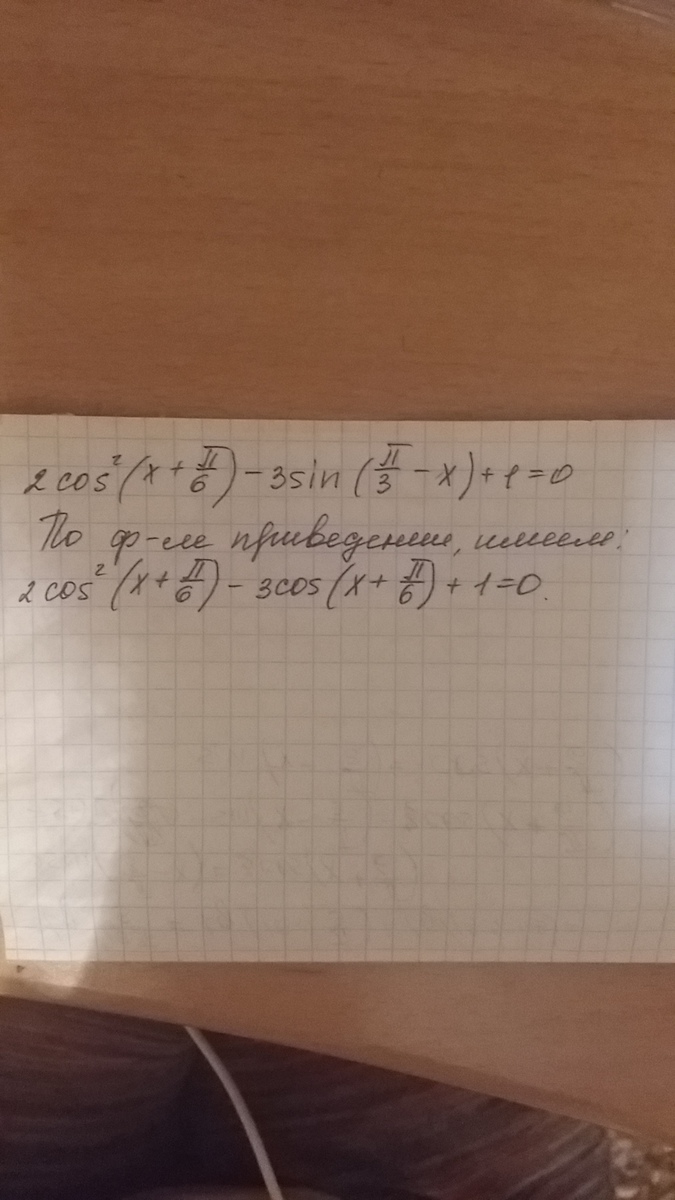 2cos²(x + π/6) - 3sin(π/3 - x) + 1 = 0
По ф-ле приведения, имеем:
2cos²(x + π/6) - 3cos(x + π/6) + 1 = 0.